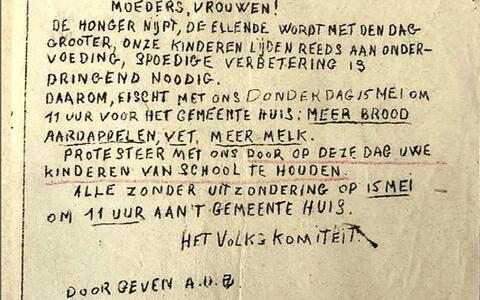 MOEDERS, VROUWEN!
DE HONGER NIJPT, DE ELLENDE WORDT MET DEN DAG
GROOTER, ONZE KINDEREN LIJDEN REEDS AAN ONDER-
VOEDING, SPOEDIGE VERBETERING IS
DRINGEND NOODIG.
DAAROM, EISCHT MET ONS DONDERDAG 15 MEI OM
11 UUR VOOR HET GEMEENTE HUIS: MEER BROOD
AARDAPPELEN, VET, MEER MELK.
PROTESTEER MET ONS DOOR OP DEZE DAG UWE
KINDEREN VAN SCHOOL TE HOUDEN.
ALLE ZONDER UITZONDERING OP 15 MEI
OM 11 UUR AAN'T GEMEENTE HUIS.
HET VOLKSKOMITEIT.
DOOR GEVEN A.U.B.